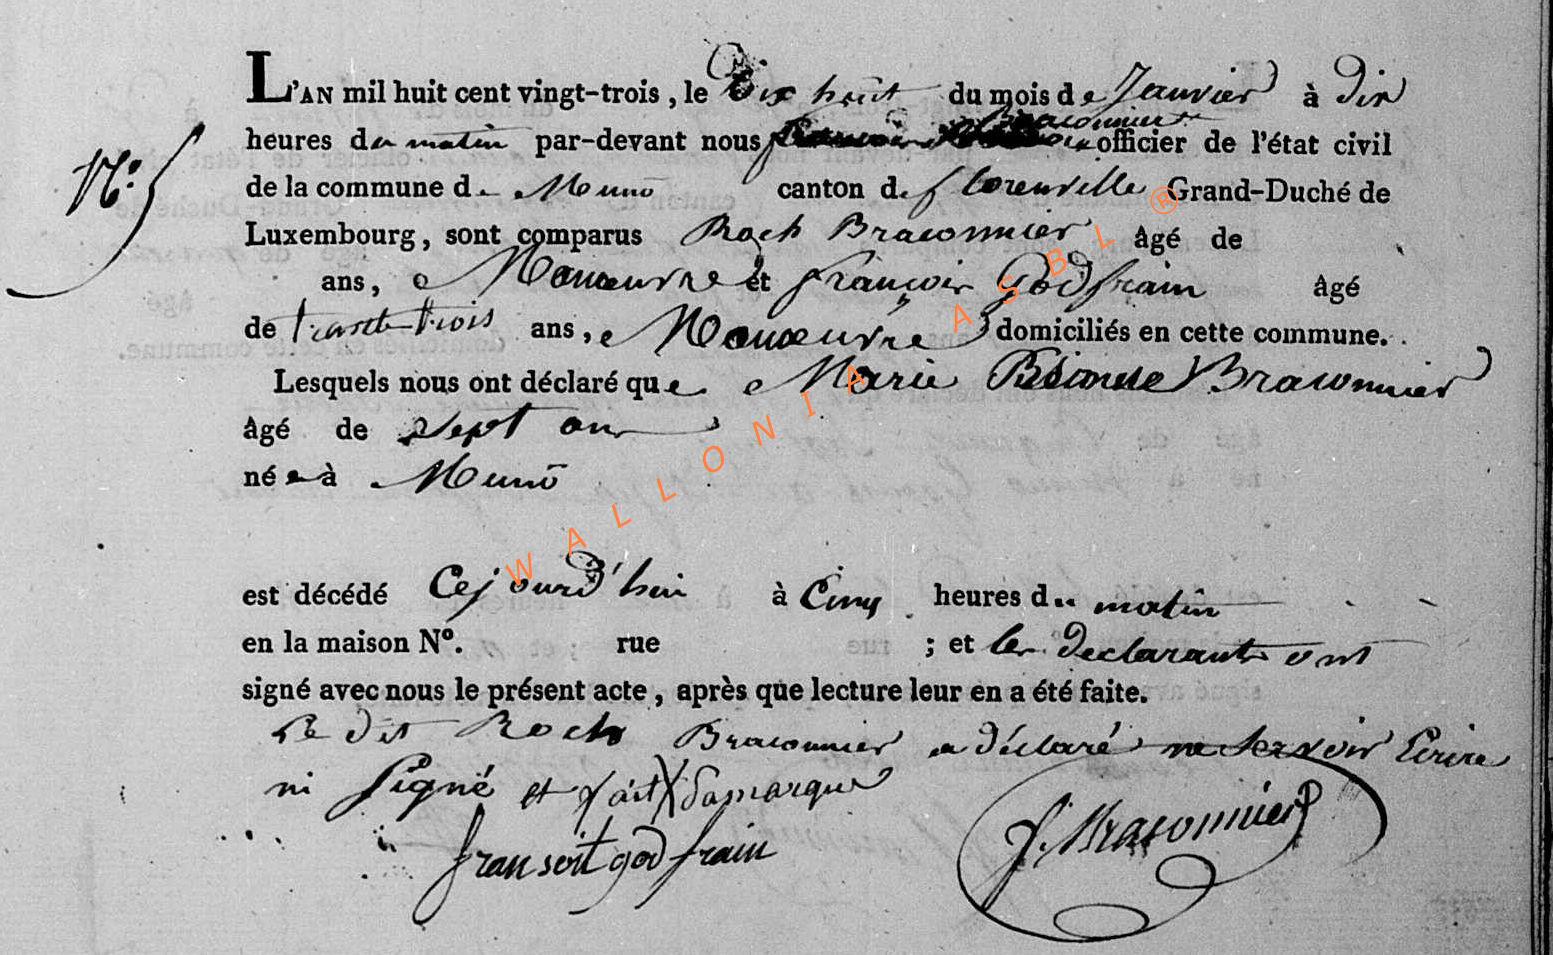 N.° 5
L'AN mil huit cent vingt-trois, le Dix huit du mois de Janvier à Dix
heures du matin par-devant nous Braconnier officier de l'état civil
de la commune de Muno canton de florenville Grand-Duché de
Luxembourg, sont comparus Roch Braconnier âgé de
ans, Manœuvre et françois Godfrain âgé
de trente trois ans, Manœuvre domiciliés en cette commune.
Lesquels nous ont déclaré que Marie Braconnier
âgé de Sept ans
née à Muno
est décédé Cejourd'hui à Cinq heures du matin
en la maison N°. rue ; et les declarants ont
signé avec nous le présent acte, après que lecture leur en a été faite.
Le dit Roch Braconnier a déclaré ne Savoir Ecrire
ni Signé et fait X Samarque
fransoit godfrain
f. Braconnier
WALLONIA ASBL ®